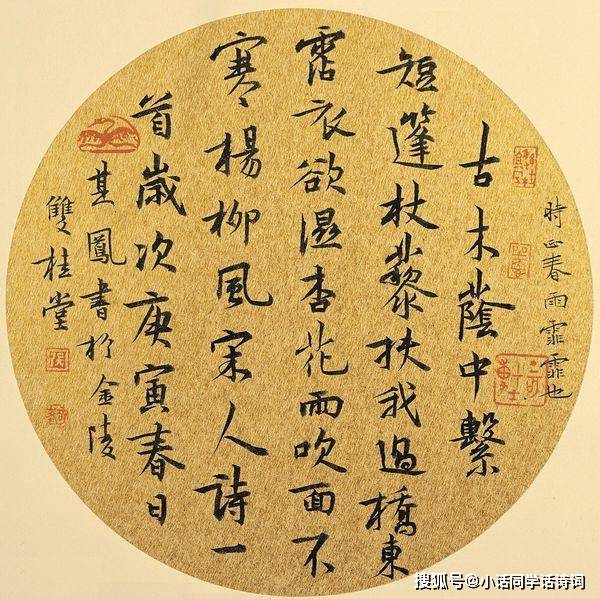 時正春雨霏霏也
古木蔭中繫
短篷杖藜扶我過橋東
霑衣欲濕杏花雨吹面不
寒楊柳風宋人詩一
首歲次庚寅春日
其鳳書於金陵
雙桂堂
搜狐号@小话同学话诗词